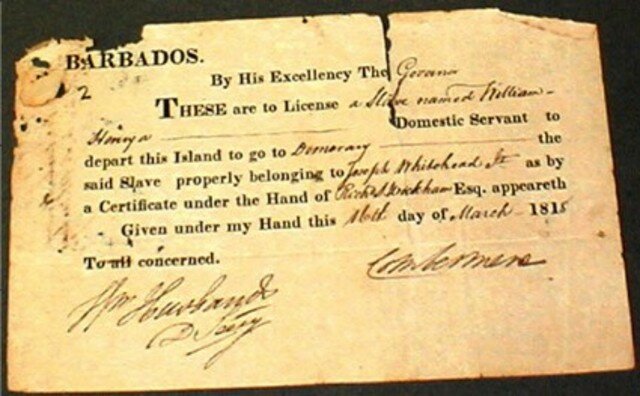 BARBADOS.
2
By His Excellency The Govenor
THESE are to License a Slave named William
Henry a Domestic Servant to
depart this Island to go to Demerary the
said Slave properly belonging to Joseph Whitehead as by
a Certificate under the Hand of Richd Wickham Esq. appeareth
Given under my Hand this 16th day of March 1818
To all concerned.
Combermere
Wm Husbands
D Secy